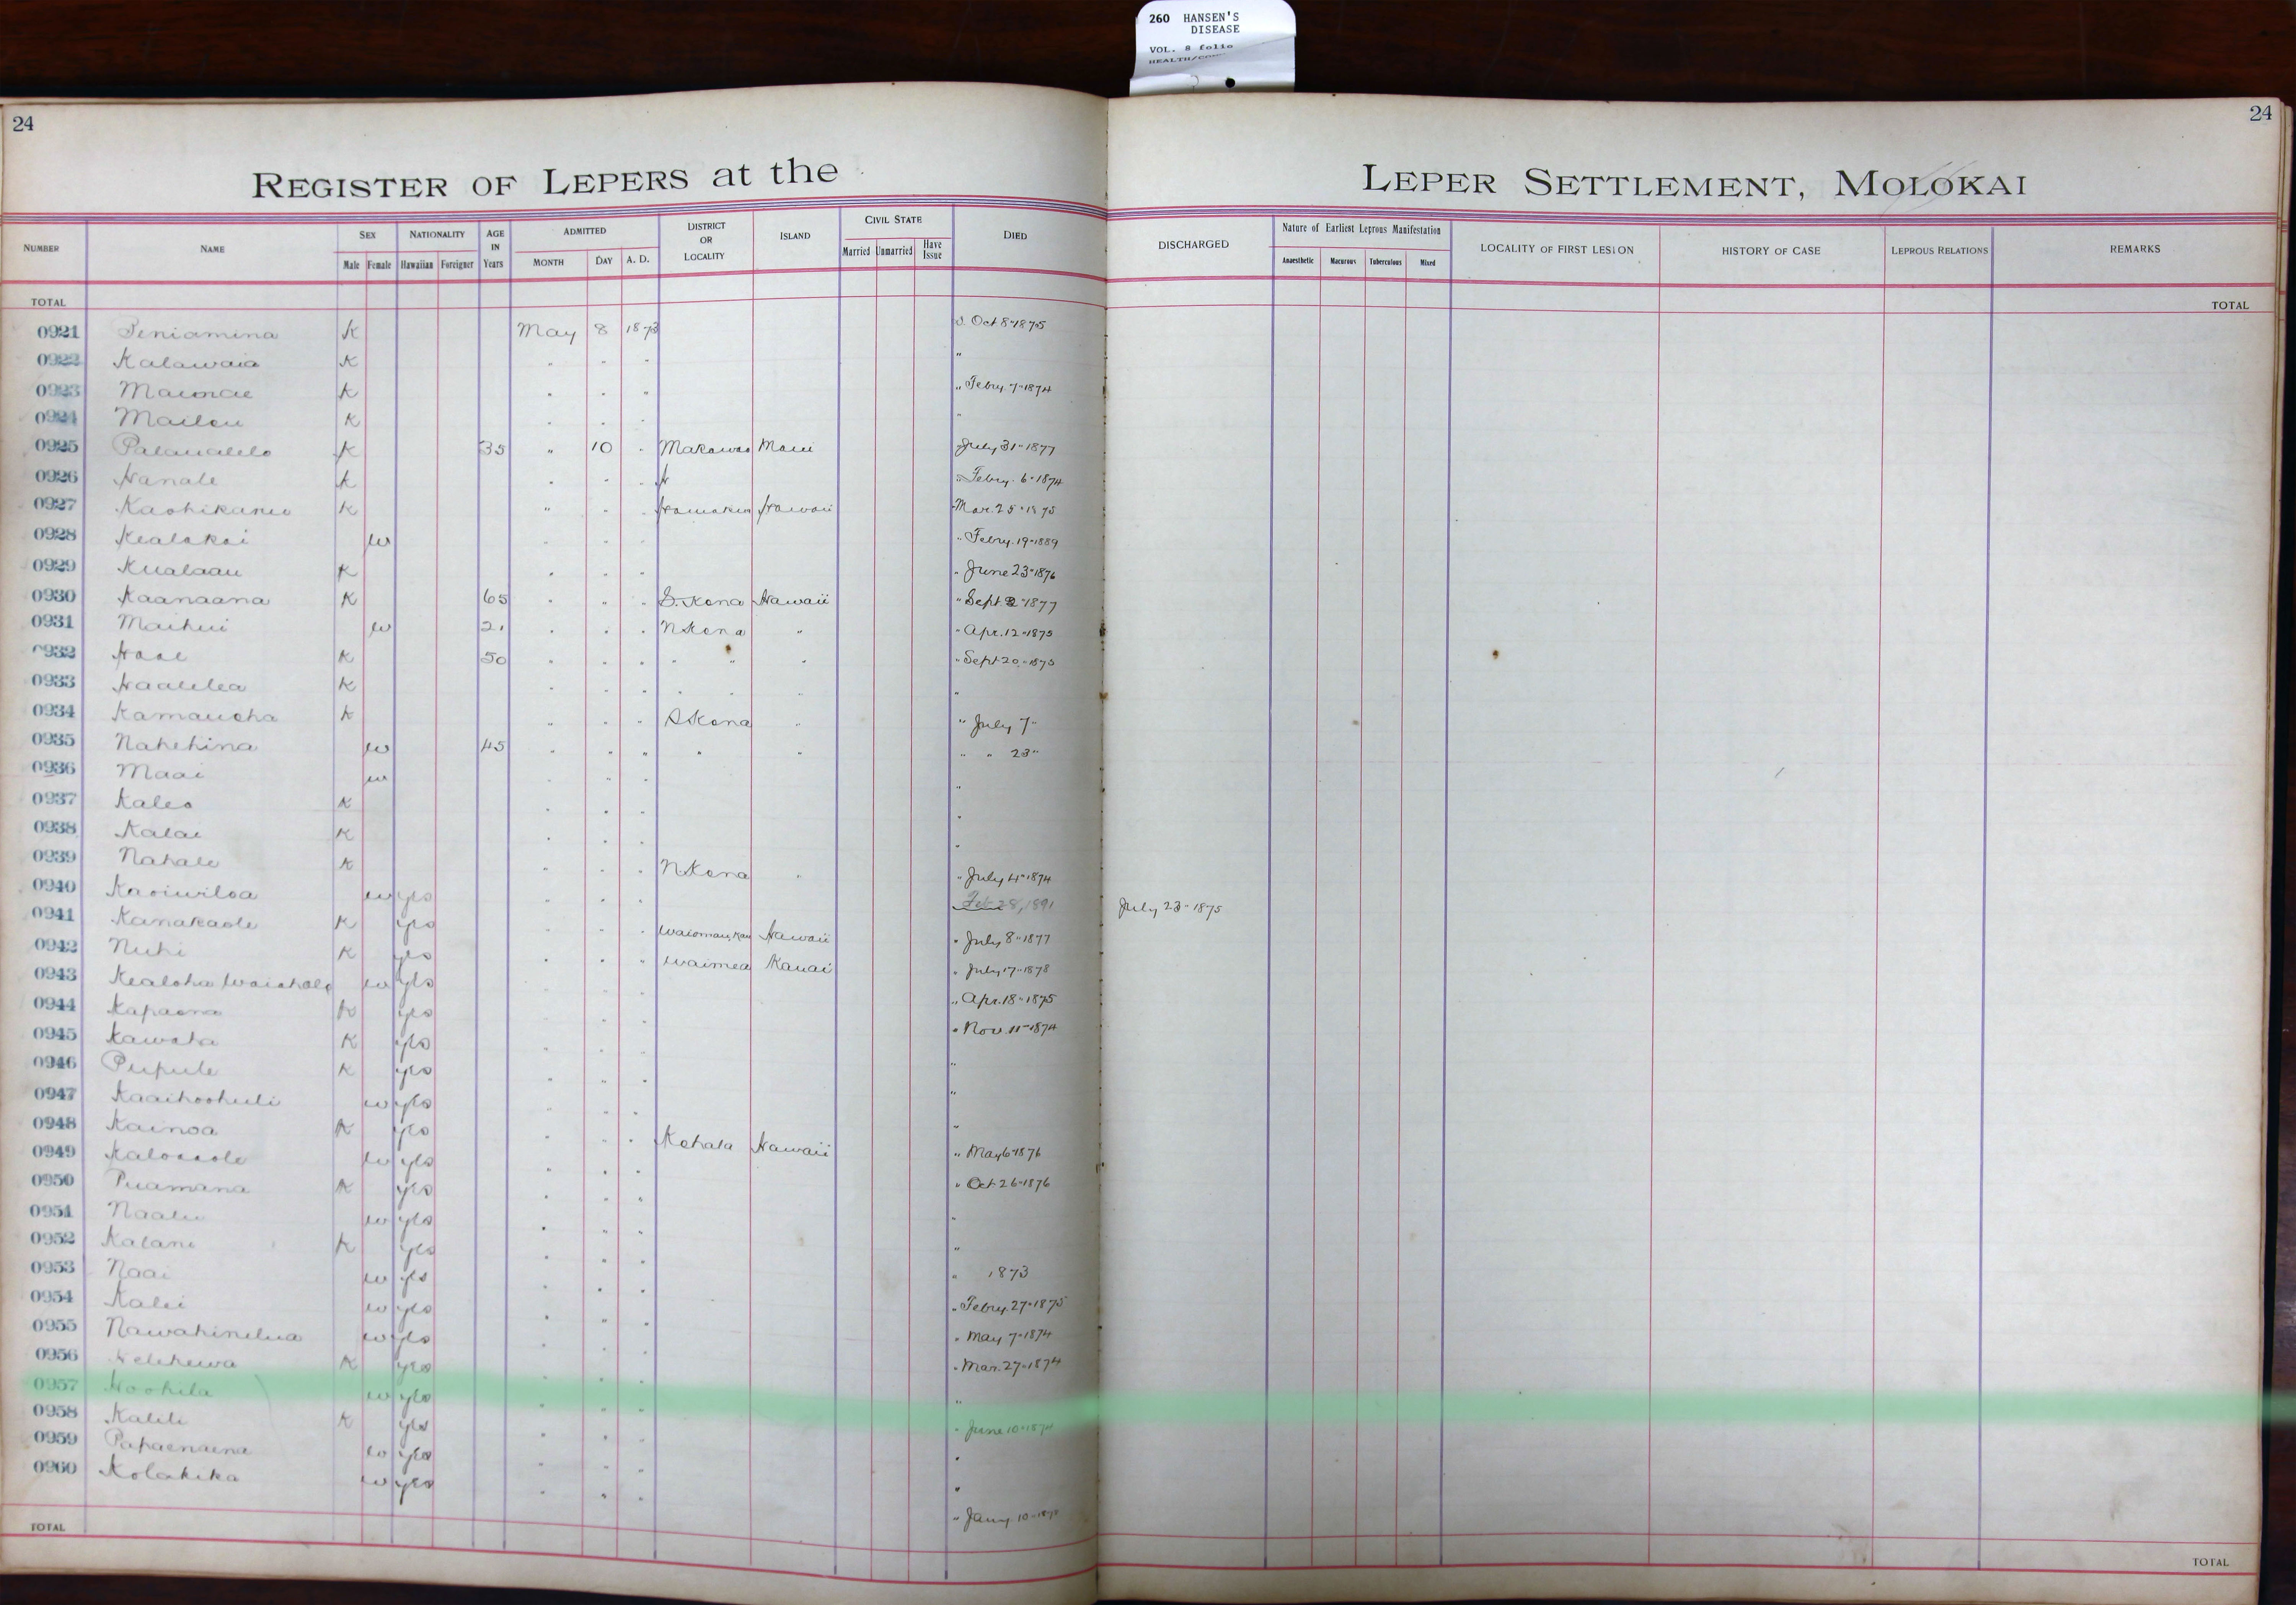 260 HANSEN'S
DISEASE
VOL. 8 folio
24
24
REGISTER OF LEPERS at the LEPER SETTLEMENT, MOLOKAI
NUMBER NAME SEX NATIONALITY AGE IN Years ADMITTED DISTRICT OR LOCALITY ISLAND CIVIL STATE DIED DISCHARGED Nature of Earliest Leprous Manifestation LOCALITY OF FIRST LESION HISTORY OF CASE LEPROUS RELATIONS REMARKS
Male Female Hawaiian Foreigner MONTH DAY A. D. Married Unmarried Have Issue Anaesthetic Macurous Tuberculous Mixed
TOTAL TOTAL
0921 Peniamina K May 8 1873 Oct 8 " 1875
0922 Kalawaia K " " " "
0923 K " " " " Febry. 7 " 1874
0924 K " " " "
0925 K 35 " 10 " Makawao Maui July 31 " 1877
0926 Hanale K " " " " Febry. 6 " 1874
0927 K " " " Hamakua Hawaii Mar. 25 " 1875
0928 Kealakai w " " " " Febry. 19 " 1889
0929 Kualaau K " " " " June 23 " 1876
0930 Kaanaana K 65 " " " S. Kona Hawaii " Sept 2 " 1877
0931 Maihui w 21 " " " N Kona " " Apr. 12 " 1875
0932 K 50 " " " " " " " Sept 20 " 1875
0933 Haalelea K " " " " " " "
0934 Kamauoha K " " " S Kona " " July 7 "
0935 Nahehina w 45 " " " " " " " 23 "
0936 Maai w " " " "
0937 Kaleo K " " " "
0938 Kalai K " " " "
0939 Nahale K " " " N Kona " " July 4 " 1874
0940 Kaoiwiloa w yes " " " Feb 28, 1891 July 23 " 1875
0941 Kanakaole K yes " " " Hawaii " July 8 " 1877
0942 Nuhi K yes " " " Waimea Kauai " July 17 " 1878
0943 Kealoha w yes " " " " Apr. 18 " 1875
0944 Kapaona K yes " " " " Nov. 11 " 1874
0945 Kawaha K yes " " " "
0946 Pupule K yes " " " "
0947 Kaaihoohuli w yes " " " "
0948 Kainoa K yes " " " Kohala Hawaii " May 6 " 1876
0949 w yes " " " " Oct 26 " 1876
0950 Puamana K yes " " " "
0951 w yes " " " "
0952 Kalani K yes " " " " 1873
0953 Naai w yes " " " " Febry. 27 " 1875
0954 Kalei w yes " " " " May 7 " 1874
0955 Nawahinelua w yes " " " " Mar. 27 " 1874
0956 Kelehewa K yes " " " "
0957 Hoohila w yes " " " " June 10 " 1874
0958 Kalili K yes " " " "
0959 Papaenaena w yes " " " "
0960 Kolakika w yes " " " " Jany. 10
TOTAL TOTAL